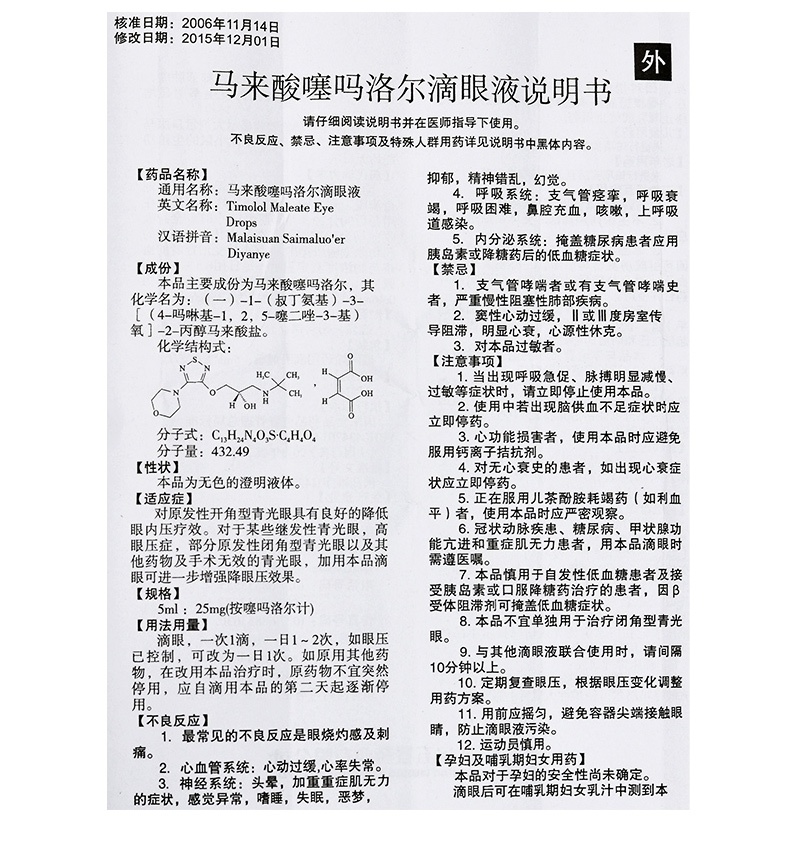 核准日期：2006年11月14日
修改日期：2015年12月01日
外
马来酸噻吗洛尔滴眼液说明书
请仔细阅读说明书并在医师指导下使用。
不良反应、禁忌、注意事项及特殊人群用药详见说明书中黑体内容。
【药品名称】
通用名称：马来酸噻吗洛尔滴眼液
英文名称：Timolol Maleate Eye
Drops
汉语拼音：Malaisuan Saimaluo'er
Diyanye
【成份】
本品主要成份为马来酸噻吗洛尔，其
化学名为：（一）-1-（叔丁氨基）-3-
［（4-吗啉基-1，2，5-噻二唑-3-基）
氧］-2-丙醇马来酸盐。
化学结构式：
分子式：C₁₃H₂₄N₄O₃S·C₄H₄O₄
分子量：432.49
【性状】
本品为无色的澄明液体。
【适应症】
对原发性开角型青光眼具有良好的降低
眼内压疗效。对于某些继发性青光眼，高
眼压症，部分原发性闭角型青光眼以及其
他药物及手术无效的青光眼，加用本品滴
眼可进一步增强降眼压效果。
【规格】
5ml：25mg(按噻吗洛尔计)
【用法用量】
滴眼，一次1滴，一日1～2次，如眼压
已控制，可改为一日1次。如原用其他药
物，在改用本品治疗时，原药物不宜突然
停用，应自滴用本品的第二天起逐渐停
用。
【不良反应】
1. 最常见的不良反应是眼烧灼感及刺
痛。
2. 心血管系统：心动过缓,心率失常。
3. 神经系统：头晕，加重重症肌无力
的症状，感觉异常，嗜睡，失眠，恶梦，
抑郁，精神错乱，幻觉。
4. 呼吸系统：支气管痉挛，呼吸衰
竭，呼吸困难，鼻腔充血，咳嗽，上呼吸
道感染。
5. 内分泌系统：掩盖糖尿病患者应用
胰岛素或降糖药后的低血糖症状。
【禁忌】
1. 支气管哮喘者或有支气管哮喘史
者，严重慢性阻塞性肺部疾病。
2. 窦性心动过缓，Ⅱ或Ⅲ度房室传
导阻滞，明显心衰，心源性休克。
3. 对本品过敏者。
【注意事项】
1. 当出现呼吸急促、脉搏明显减慢、
过敏等症状时，请立即停止使用本品。
2. 使用中若出现脑供血不足症状时应
立即停药。
3. 心功能损害者，使用本品时应避免
服用钙离子拮抗剂。
4. 对无心衰史的患者，如出现心衰症
状应立即停药。
5. 正在服用儿茶酚胺耗竭药（如利血
平）者，使用本品时应严密观察。
6. 冠状动脉疾患、糖尿病、甲状腺功
能亢进和重症肌无力患者，用本品滴眼时
需遵医嘱。
7. 本品慎用于自发性低血糖患者及接
受胰岛素或口服降糖药治疗的患者，因β
受体阻滞剂可掩盖低血糖症状。
8. 本品不宜单独用于治疗闭角型青光
眼。
9. 与其他滴眼液联合使用时，请间隔
10分钟以上。
10. 定期复查眼压，根据眼压变化调整
用药方案。
11. 用前应摇匀，避免容器尖端接触眼
睛，防止滴眼液污染。
12. 运动员慎用。
【孕妇及哺乳期妇女用药】
本品对于孕妇的安全性尚未确定。
滴眼后可在哺乳期妇女乳汁中测到本